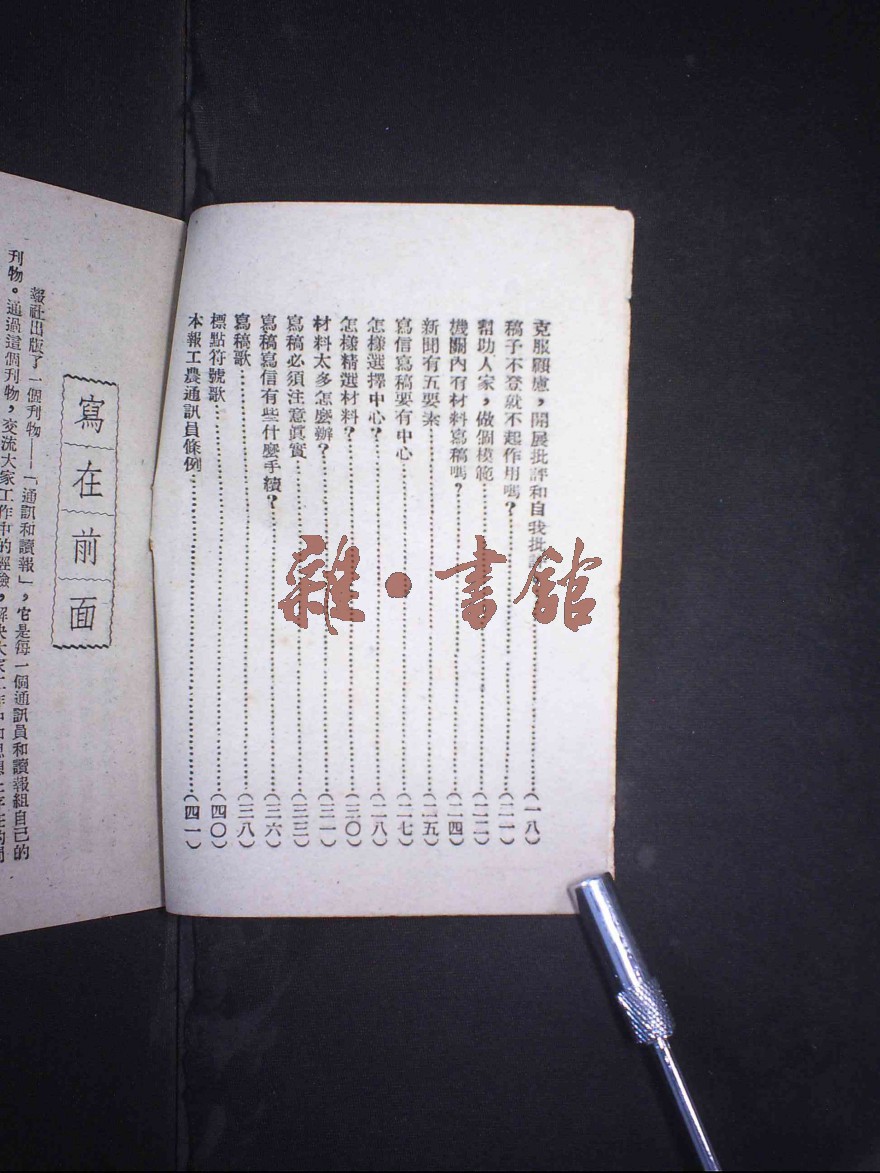 克服顧慮，開展批評和自我批評……(一八)
稿子不登就不起作用嗎？……(二一)
幫助人家，做個模範……(二二)
機關內有材料寫稿嗎？……(二四)
新聞有五要素……(二五)
寫信寫稿要有中心……(二七)
怎樣選擇中心？……(二八)
怎樣精選材料？……(三〇)
材料太多怎麼辦？……(三一)
寫稿必須注意眞實……(三三)
寫稿寫信有些什麼手續？……(三六)
寫稿歌……(三八)
標點符號歌……(四〇)
本報工農通訊員條例……(四一)
寫在前面
報社出版了一個刊物——「通訊和讀報」，它是每一個通訊員和讀報組自己的
刊物。通過這個刊物，交流大家工作中的經驗，解決大家工作中和思想上存在的問
雜·書館